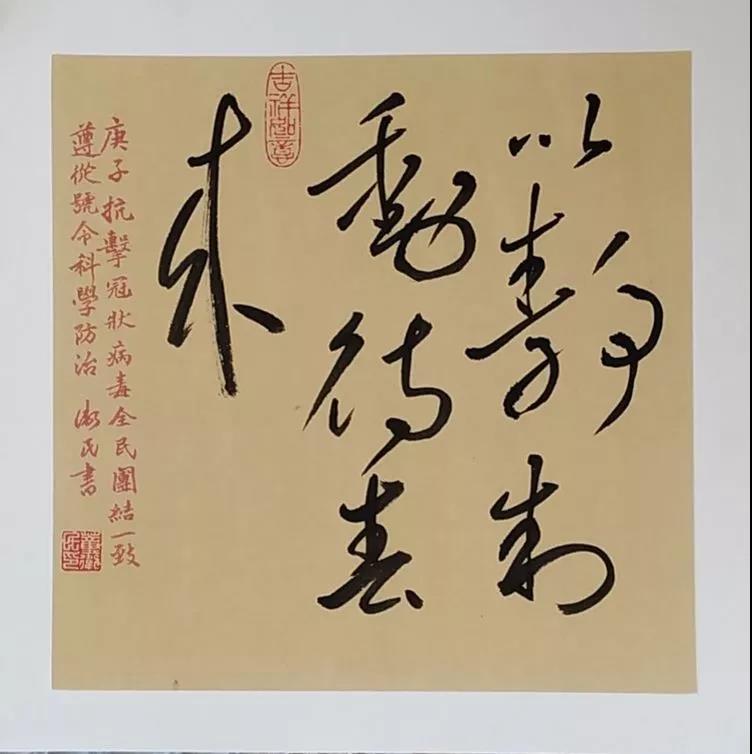 以靜制
動待春
來
吉祥如意
庚子抗擊冠狀病毒全民團結一致
遵從號令科學防治 淑民書